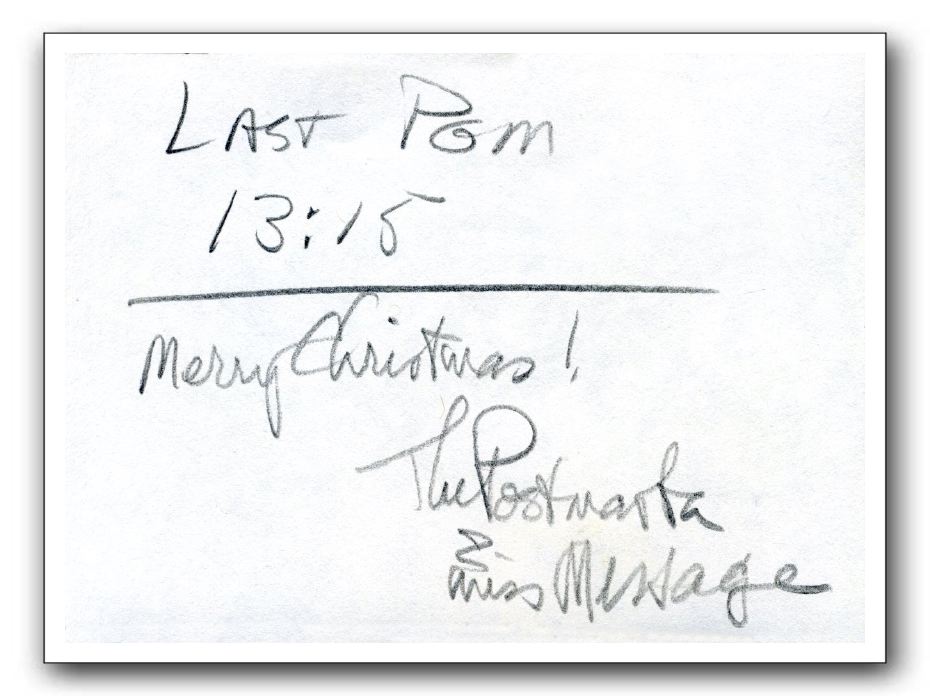 LAST PGM
13:15
Merry Christmas!
The Postmarta
& Miss Message